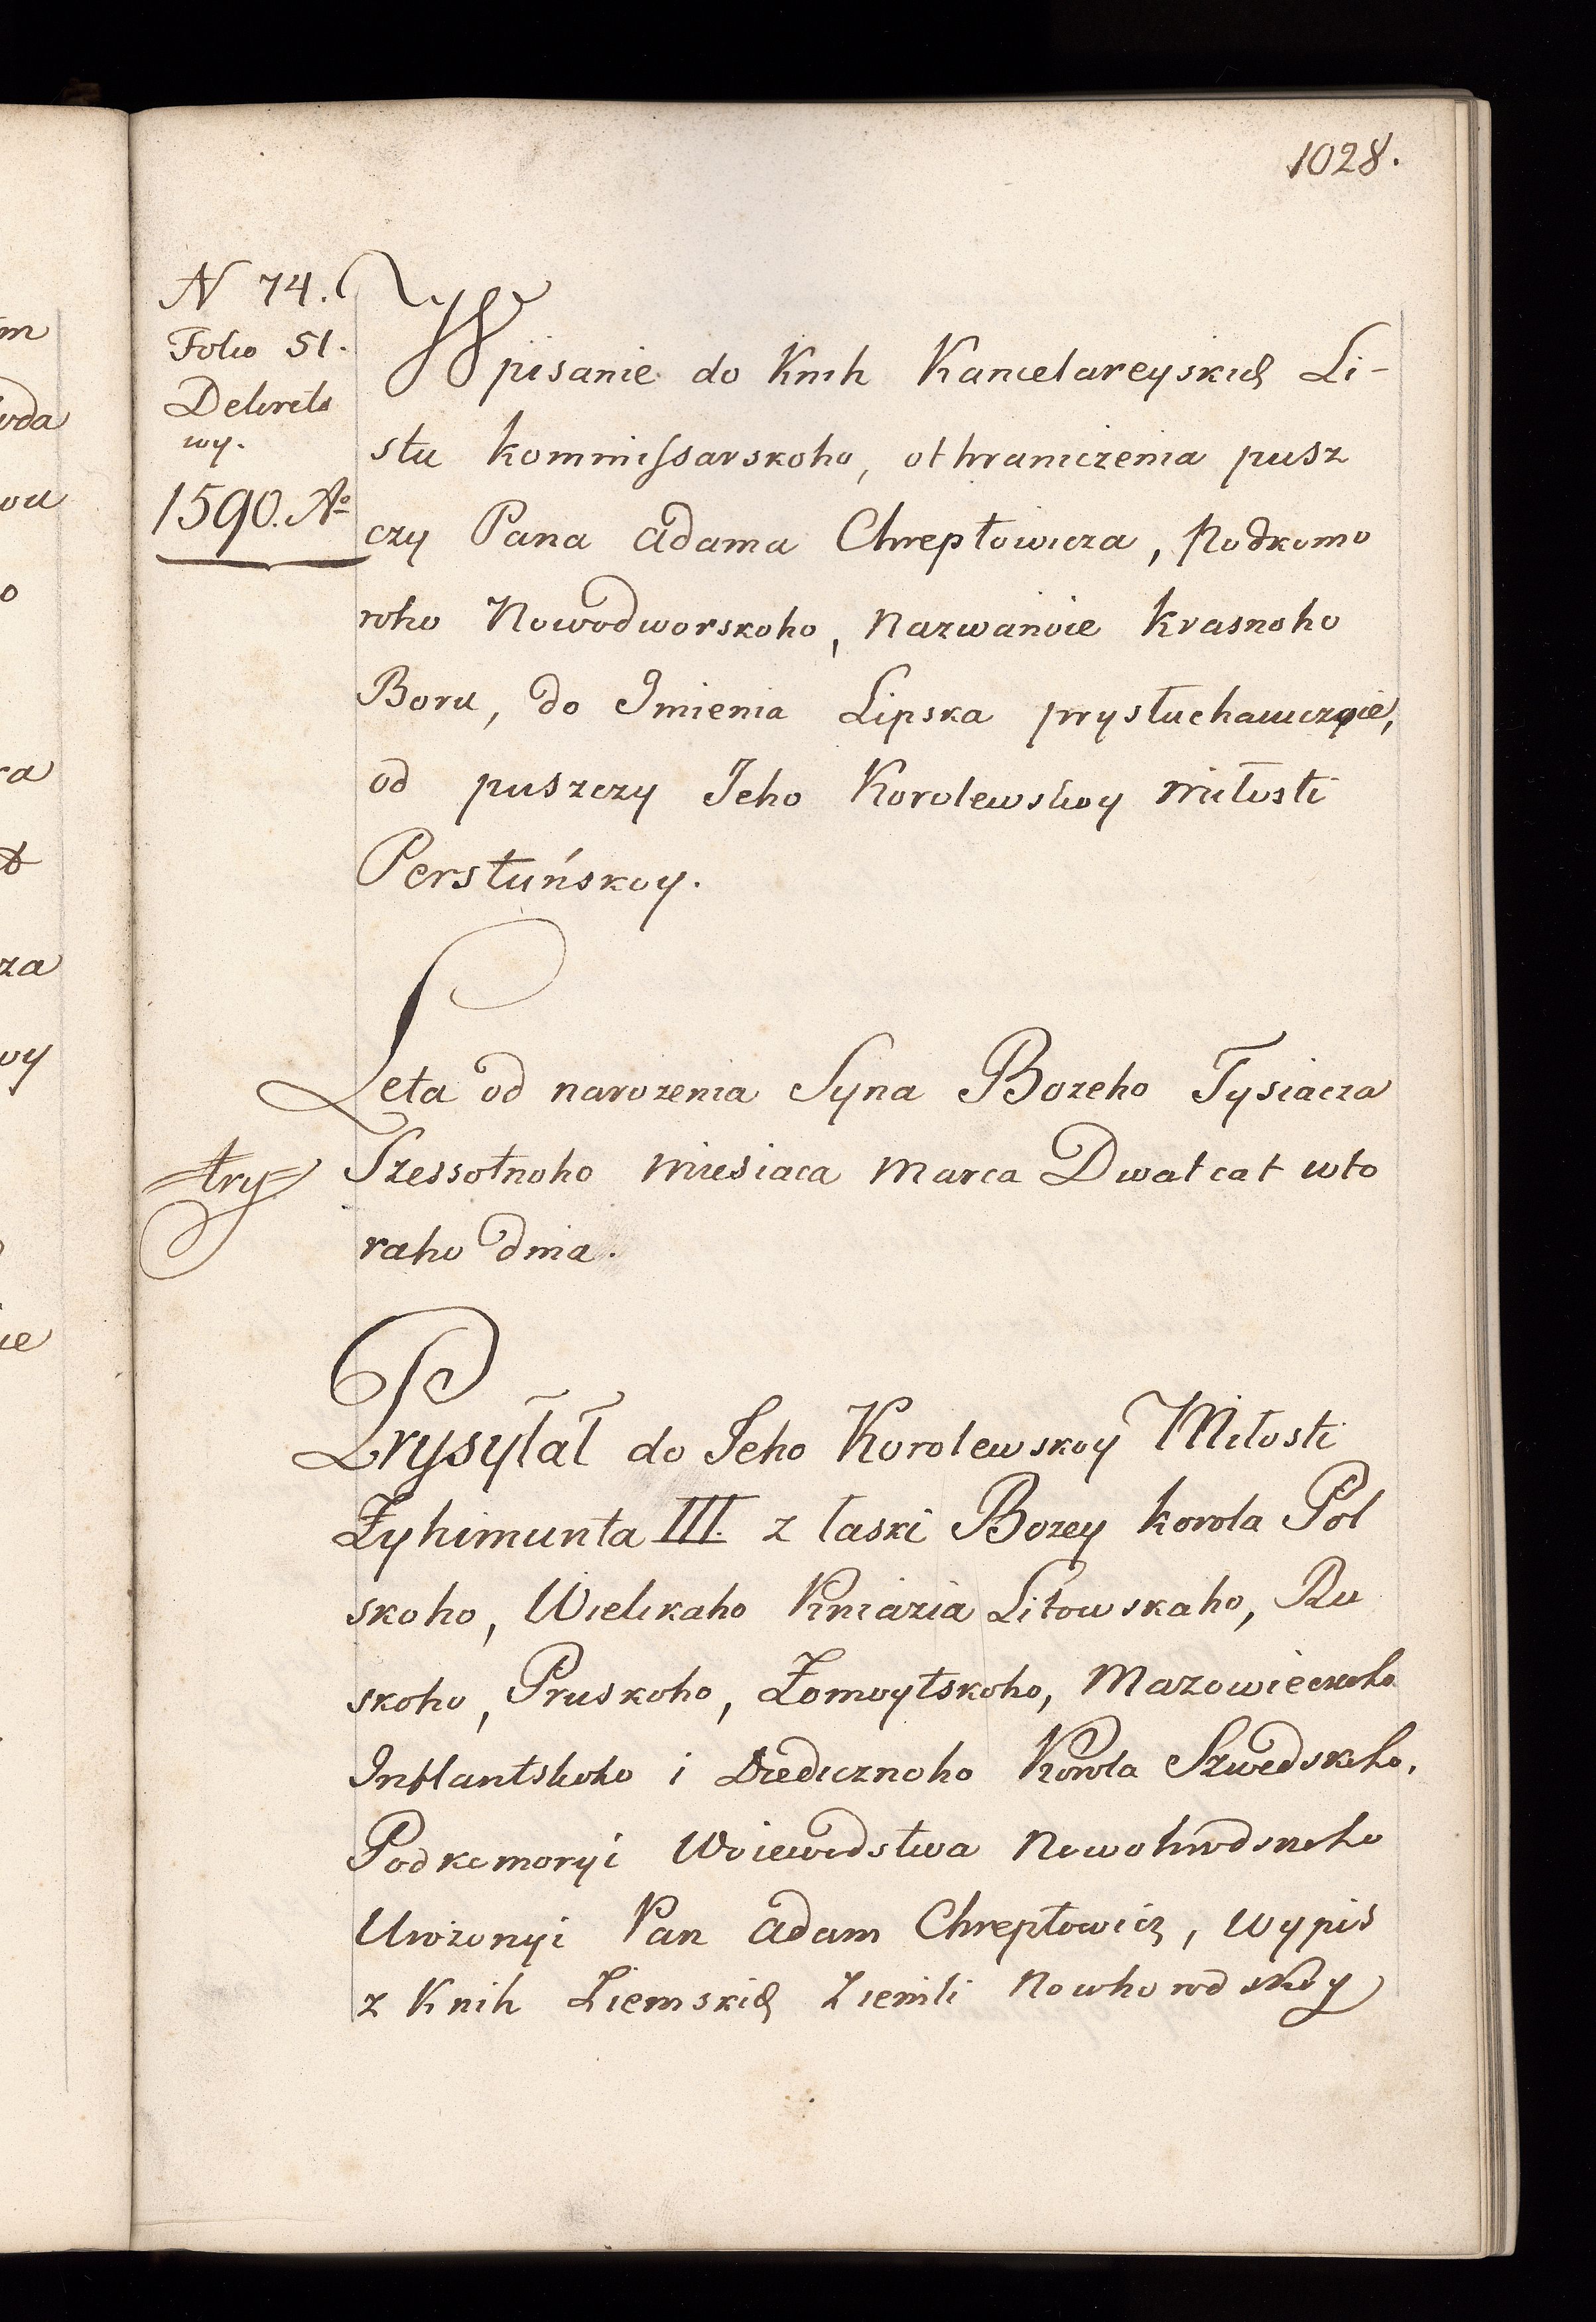 1028.
N 74.
Folio 51.
Dekreto
wy.
1590. Aº
Wpisanie do Knih Kancelareyskich Li-
stu kommissarskoho, othraniczenia pusz
czy Pana Adama Chreptowicza, Podkomo
roho Nowodworskoho, Nazwanoie Krasnoho
Boru, do Imienia Lipska prysłuchaiuczoie,
od puszczy Jeho Korolewskoy miłosti
Perstuńskoy.
Leta od narozenia Syna Bozeho Tysiacza
try Szessotnoho miesiaca Marca Dwatcat wto
raho dnia.
Prysyłał do Jeho Korolewskoy Miłosti
Zyhimunta III. z łaski Bozey korola Pol
skoho, Wielikaho Kniazia Litowskaho, Ru
skoho, Pruskoho, Zomoytskoho, Mazowieckoho
Inflantskoho i Dziedicznoho Korola Szwedskoho.
Podkomoryi Woiewodstwa Nowohrodskoho
Urożonyi Pan Adam Chreptowicz, wypis
z Knih Ziemskich Ziemli Nowhorodskoy